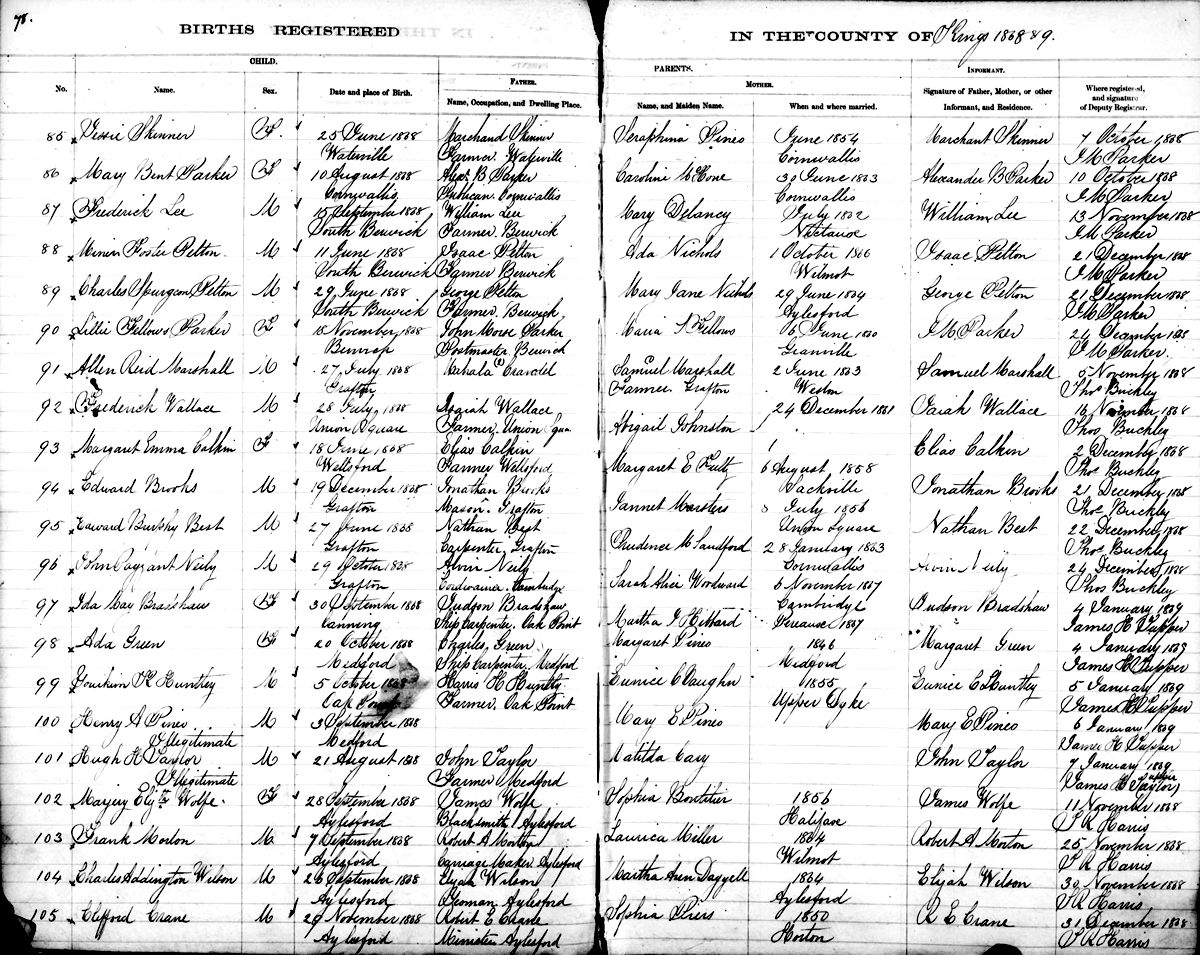 78.
BIRTHS REGISTERED IN THE COUNTY OF Kings 1868 & 9.
CHILD. PARENTS.
FATHER. MOTHER. INFORMANT.
No. Name. Sex. Date and place of Birth. Name, Occupation, and Dwelling Place. Name, and Maiden Name. When and where married. Signature of Father, Mother, or other Informant, and Residence. Where registered, and signature of Deputy Registrar.
85 Skinner F. 25 June 1868 Marchand Skinner Seraphina Pineo June 1854 Marchant Skinner 7 October 1868
Waterville Farmer Waterville Cornwallis I M Parker
86 Mary Bent Parker F 10 August 1868 Alexr B Parker Caroline 30 June 1863 Alexander B Parker 10 October 1868
Cornwallis Publican Cornwallis Cornwallis I M Parker
87 Frederick Lee M 15 September 1868 William Lee Mary Delancy July 1862 William Lee 13 November 1868
South Berwick Farmer Berwick Nictaux I M Parker
88 Foster Pelton M 11 June 1868 Isaac Pelton Ada Nichols 1 October 1866 Isaac Pelton 21 December 1868
South Berwick Farmer Berwick Wilmot I M Parker
89 Charles Spurgeon Pelton M 29 June 1868 George Pelton Mary Jane Nichols 29 June 1864 George Pelton 21 December 1868
South Berwick Farmer Berwick Aylesford I M Parker
90 Lillie Fellows Parker F November 1868 John Morse Parker Maria A Fellows 6 June 1860 I M Parker 24 December 1868
Berwick Postmaster Berwick Granville I M Parker
91 Allen Reid Marshall M 27 July 1868 Mahala Samuel Marshall 2 June 1863 Samuel Marshall 5 November 1868
Grafton Farmer Grafton Weston Thos Buckley
92 Frederick Wallace M 28 July 1868 Isaiah Wallace Abigail Johnston 24 December 1861 Sarah Wallace 16 November 1868
Union Square Farmer Union Squa Thos Buckley
93 Margaret Emma Calkin F 18 June 1868 Elias Calkin Margaret E 6 August 1858 Elias Calkin 2 December 1868
Welsford Farmer Welsford Sackville Thos Buckley
94 Edward Brooks M 19 December 1868 Jonathan Brooks Jannet Masters 8 July 1856 Jonathan Brooks 21 December 1868
Grafton Mason Grafton Union Square Thos Buckley
95 Best M 27 June 1868 Nathan Best Prudence M Sandford 28 January 1863 Nathan Best 22 December 1868
Grafton Carpenter Grafton Cornwallis Thos Buckley
96 John Neily M 29 October 1868 Alvin Neily Sarah Alice Woodward 6 November 1867 Alvin Neily 24 December 1868
Grafton Cordwainer Cambridge Cambridge Thos Buckley
97 Ida May Bradshaw F 30 September 1868 Judson Bradshaw Martha J Hibbard Pereaux 1867 Judson Bradshaw 4 January 1869
Canning Ship Carpenter Oak Point James H Tupper
98 Ada Green F 20 October 1868 Charles Green Margaret Pineo 1846 Margaret Green 4 January 1869
Medford Ship Carpenter Medford Medford James H Tupper
99 R Huntley M 5 October 1868 Harris H Huntly Eunice C Vaughn 1855 Eunice C Huntley 5 January 1869
Oak Point Farmer Oak Point Upper Dyke James H Tupper
100 Henry A Pineo M 3 September 1868 Mary E Pineo Mary E Pineo 6 January 1869
Illegitimate Medford James H Tupper
101 Hugh H Taylor M 21 August 1868 John Taylor Matilda Cary John Taylor 7 January 1869
Illegitimate Farmer Medford James H Tupper
102 Marjery Elizth Wolfe F 28 September 1868 James Wolfe Sophia 1856 James Wolfe 11 November 1868
Aylesford Blacksmith Aylesford Halifax S R Harris
103 Frank Morton M 7 September 1868 Robert A Morton Laurica Miller 1864 Robert A Morton 25 November 1868
Aylesford Carriage Maker Aylesford Wilmot S R Harris
104 Charles Addington Wilson M 26 September 1868 Elijah Wilson Martha Ann Daggell 1864 Elijah Wilson 30 November 1868
Aylesford Yeoman Aylesford Aylesford S R Harris
105 Clifford Crane M 29 November 1868 Robert E Crane Sophia Piers 1850 R E Crane 31 December 1868
Aylesford Minister Aylesford Horton S R Harris